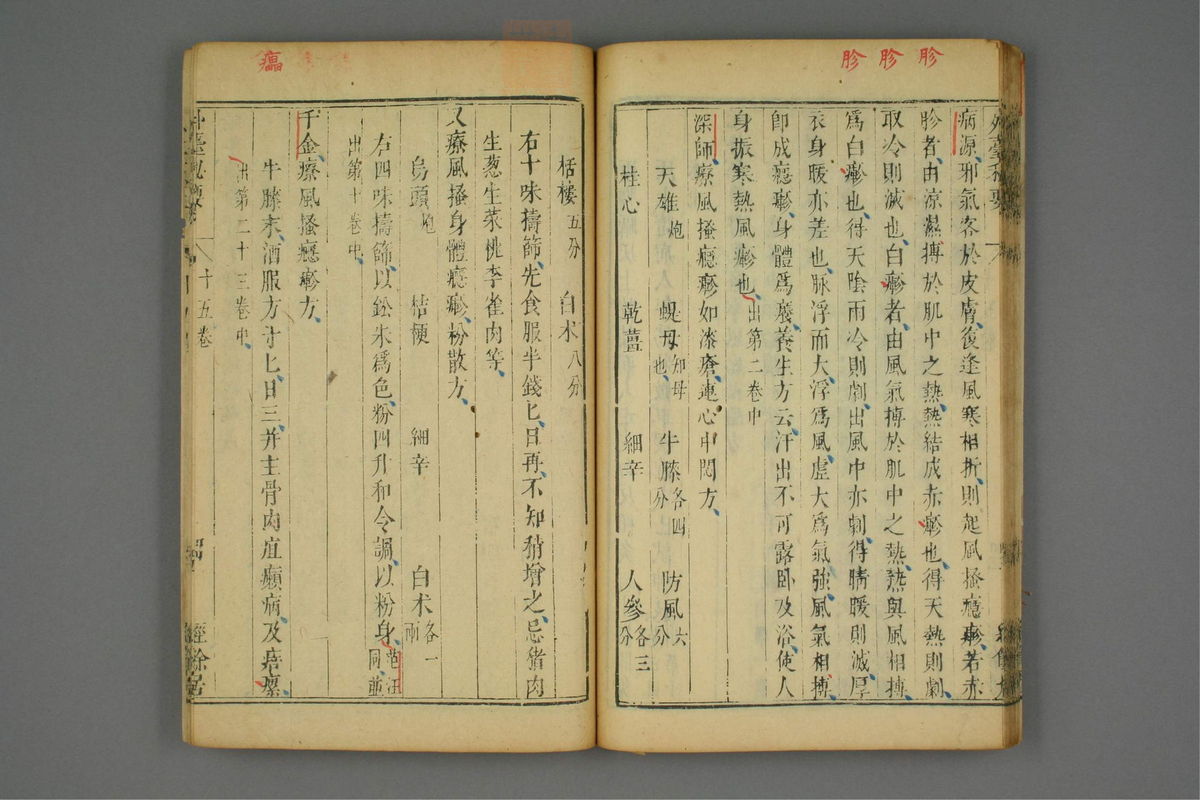 胗
胗
胗
病源邪氣客於皮膚後逢風寒相折則起風搔癮瘮若赤
胗者由涼濕搏於肌中之熱熱結成赤瘮也得天熱則劇
取冷則滅也白瘮者由風氣搏於肌中之熱熱與風相搏
爲白瘮也得天陰雨冷則劇出風中亦劇得晴暖則滅厚
衣身暖亦差也脉浮而大浮爲風虛大爲氣強風氣相搏
卽成癮瘮身體爲癢養生方云汗出不可露卧及浴使人
身振寒熱風瘮也出第二卷中
深師療風搔癮瘮如漆瘡連心中悶方
天雄炮 蝭母知母也 牛膝各四分 防風六分
桂心 乾薑 細辛 人參各三分
栝樓五分 白朮八分
右十味擣篩先食服半錢匕日再不知稍增之忌猪肉
生葱生菜桃李雀肉等
又療風搔身體癮瘮粉散方
烏頭炮 桔梗 細辛 白朮各一兩
右四味擣篩以鈆朱爲色粉四升和令調以粉身范汪同並
出第十卷中
千金療風搔癮瘮方
牛膝末酒服方寸匕日三并主骨肉疽癩病及痦㿔
出第二十三卷中
十五卷
經餘居